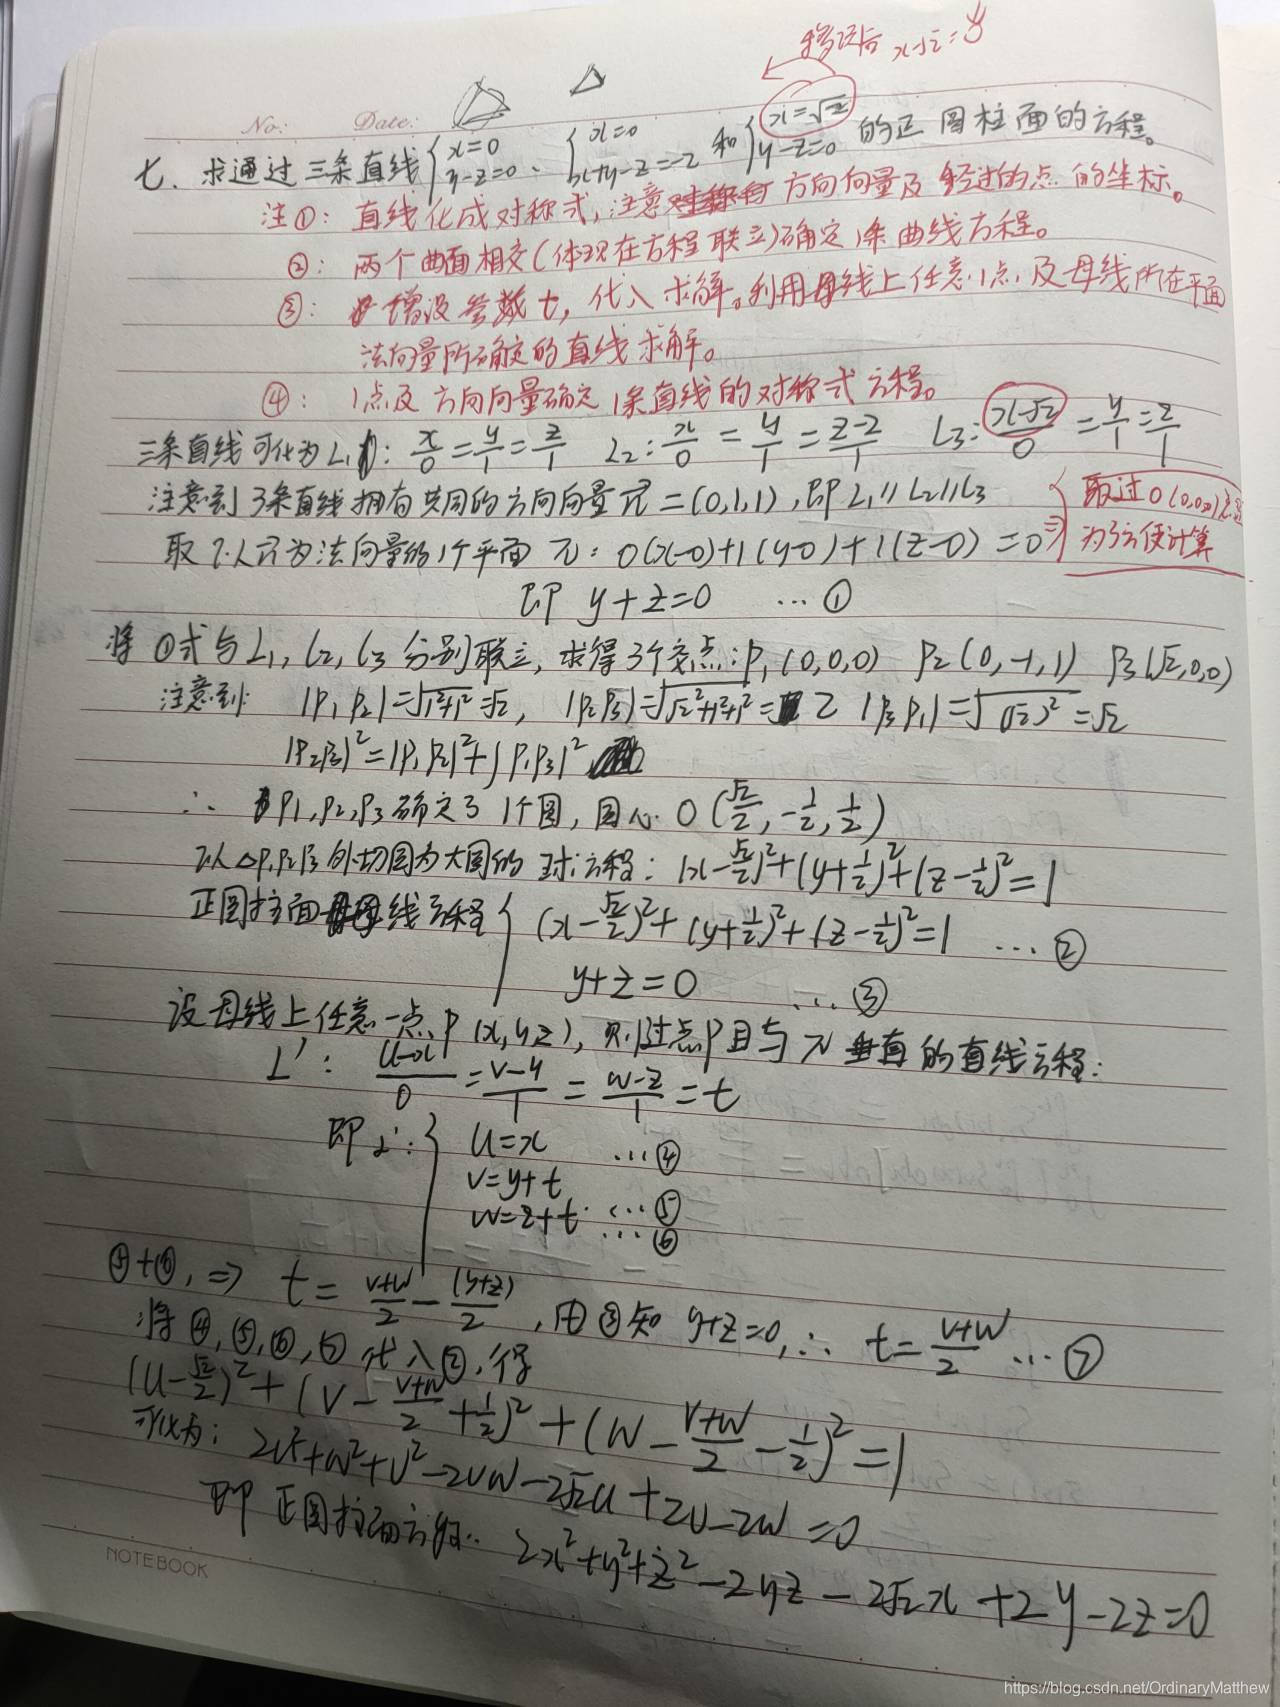 移项后 x-√2=0
No: Date:
七. 求通过三条直线 { x=0 y-z=0 、 { x=0 x+y-z=-2 和 { x=√2 y-z=0 的正圆柱面的方程。
注①: 直线化成对称式,注意 方向向量及 经过的点 的坐标。
②: 两个曲面相交(体现在方程联立)确定1条曲线方程。
③: 增设参数 t, 代入求解。利用母线上任意1点及母线所在平面
法向量所确定的直线求解。
④: 1点及方向向量确定1条直线的对称式方程。
三条直线可化为 L₁: x/0 = y/1 = z/1 L₂: x/0 = y/1 = (z-2)/1 L₃: (x-√2)/0 = y/1 = z/1
注意到3条直线拥有共同的方向向量 n = (0,1,1), 即 L₁∥L₂∥L₃
取过O(0,0,0)
取以n为法向量的1个平面 π: 0(x-0)+1(y-0)+1(z-0)=0 ⇒
为了方便计算
即 y+z=0 …①
将①式与L₁, L₂, L₃分别联立, 求得3个交点: P₁(0,0,0) P₂(0,-1,1) P₃(√2,0,0)
注意到: |P₁P₂|=√(1²+1²)=√2, |P₂P₃|=√(√2²+1²+1²)=2 |P₃P₁|=√(√2)²=√2
|P₂P₃|²=|P₁P₂|²+|P₁P₃|²
∴ P₁,P₂,P₃确定了1个圆, 圆心 O(√2/2, -1/2, 1/2)
以△P₁P₂P₃外切圆为大圆的球方程: (x-√2/2)²+(y+1/2)²+(z-1/2)²=1
正圆柱面母线方程 { (x-√2/2)²+(y+1/2)²+(z-1/2)²=1 …②
y+z=0 …③
设母线上任意一点P(x,y,z), 则过点P且与π垂直的直线方程:
L′: (u-x)/0 = (v-y)/1 = (w-z)/1 = t
即L′: { u=x …④
v=y+t …⑤
w=z+t …⑥
⑤+⑥, ⇒ t = (v+w)/2 - (y+z)/2, 由③知 y+z=0, ∴ t=(v+w)/2 …⑦
将④,⑤,⑥,⑦代入②, 得
(u-√2/2)² + (v-(v+w)/2+1/2)² + (w-(v+w)/2-1/2)² = 1
可化为: 2u²+w²+v²-2vw-2√2u+2v-2w=0
即正圆柱面方程: 2x²+y²+z²-2yz-2√2x+2y-2z=0
NOTEBOOK
https://blog.csdn.net/OrdinaryMatthew